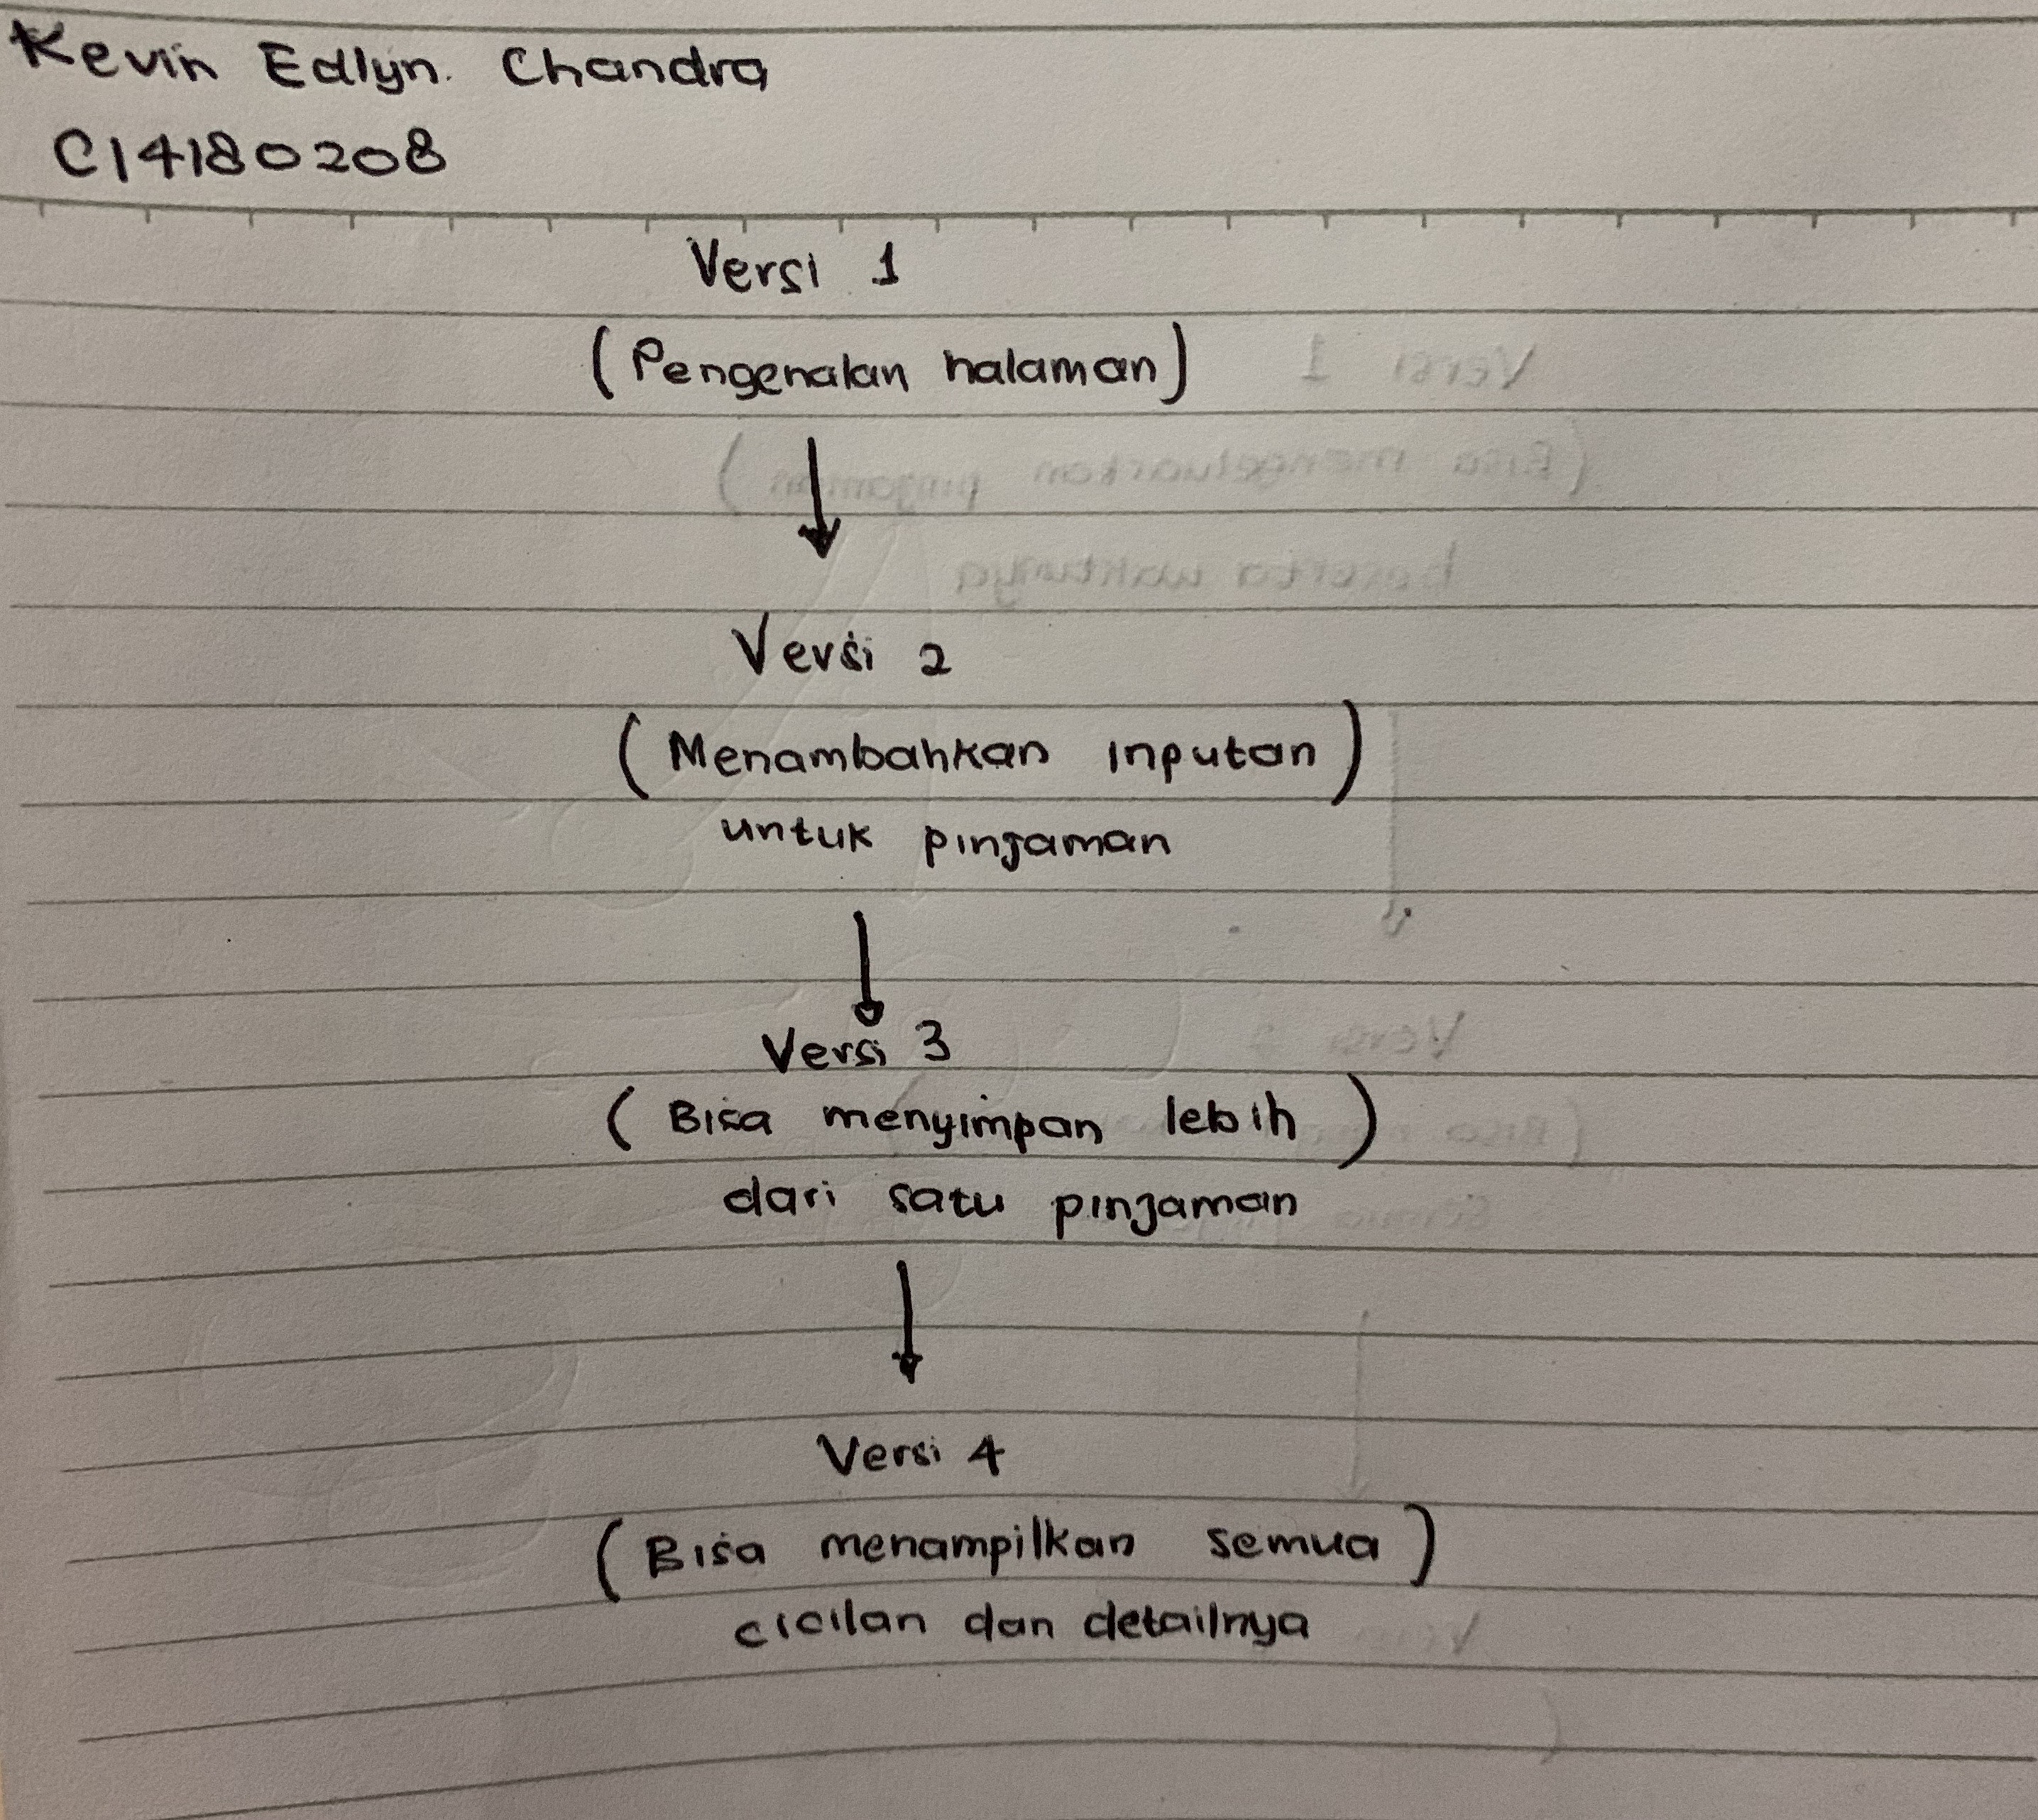 Kevin Edlyn. Chandra
C14180208
Versi 1
(Pengenalan halaman)
Versi 2
(Menambahkan inputan)
untuk pinjaman
Versi 3
(Bisa menyimpan lebih)
dari satu pinjaman
Versi 4
(Bisa menampilkan semua)
cicilan dan detailnya